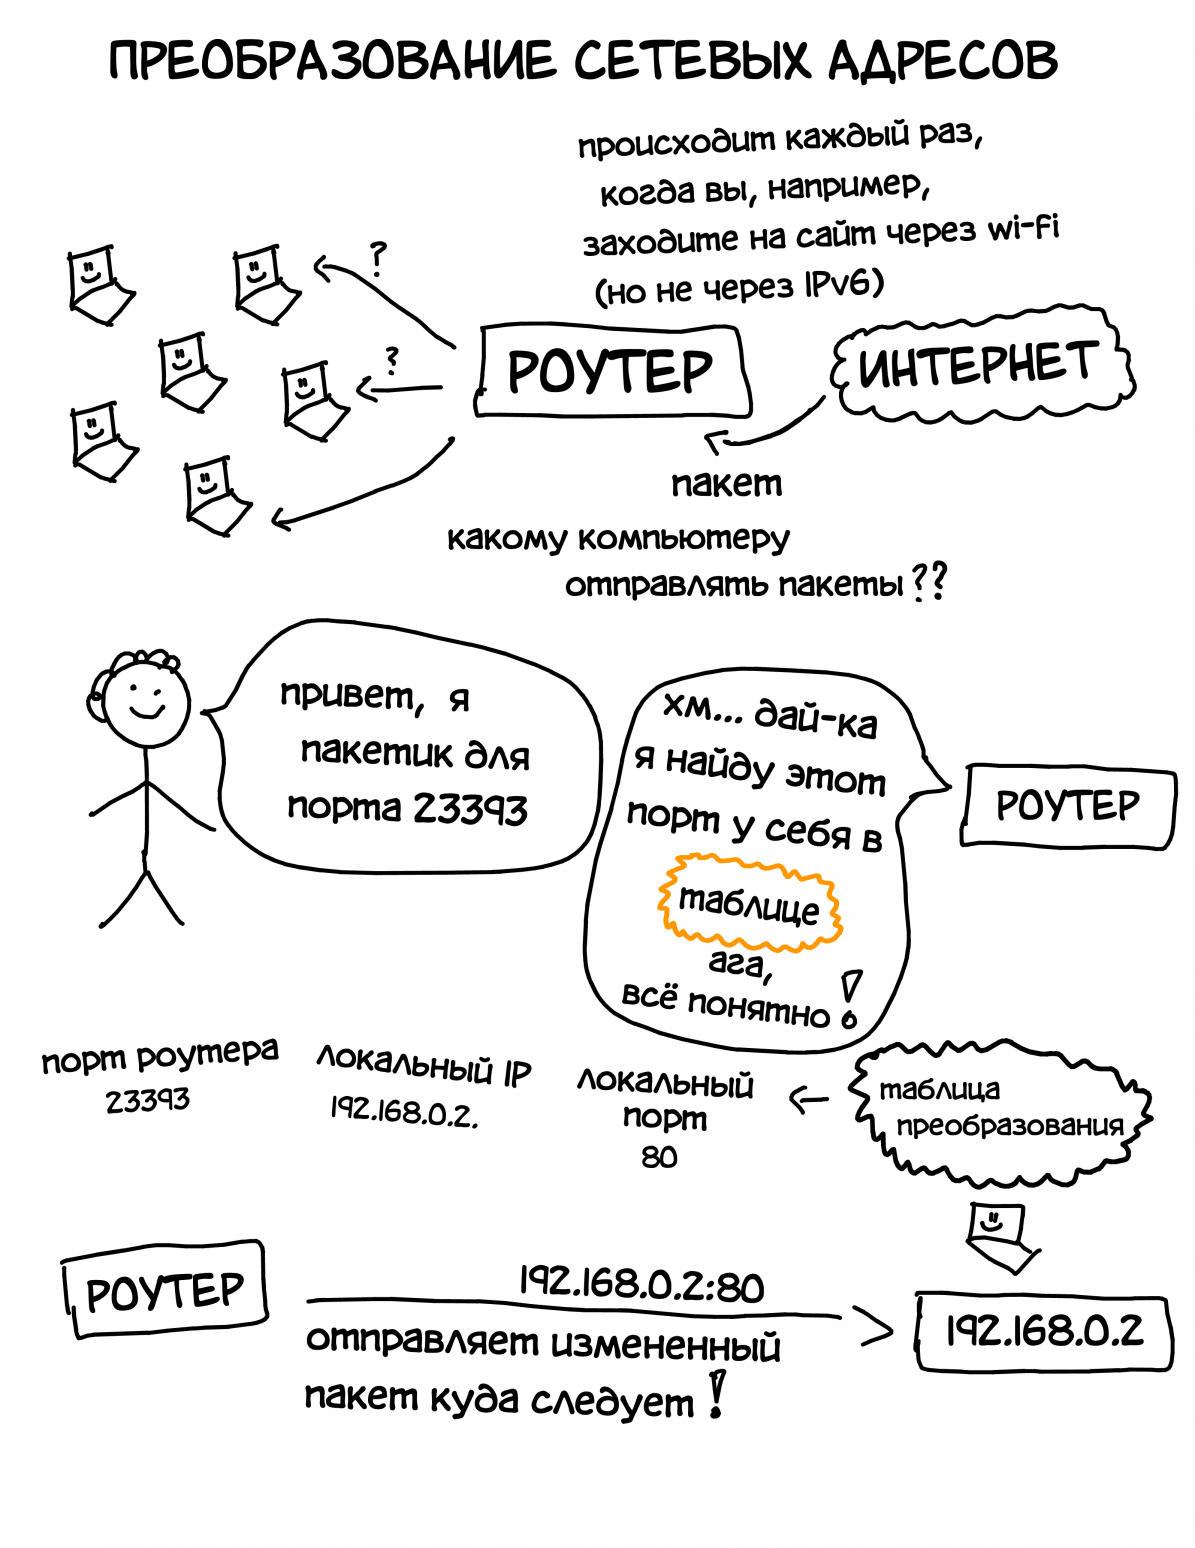 ПРЕОБРАЗОВАНИЕ СЕТЕВЫХ АДРЕСОВ
происходит каждый раз,
когда вы, например,
заходите на сайт через wi-fi
(но не через IPv6)
?
?
РОУТЕР
ИНТЕРНЕТ
пакет
какому компьютеру
отправлять пакеты??
привет, я
пакетик для
порта 23393
хм... дай-ка
я найду этот
порт у себя в
таблице
ага,
всё понятно!
РОУТЕР
порт роутера
23393
локальный IP
192.168.0.2.
локальный
порт
80
таблица
преобразования
РОУТЕР
192.168.0.2:80
отправляет измененный
пакет куда следует!
192.168.0.2